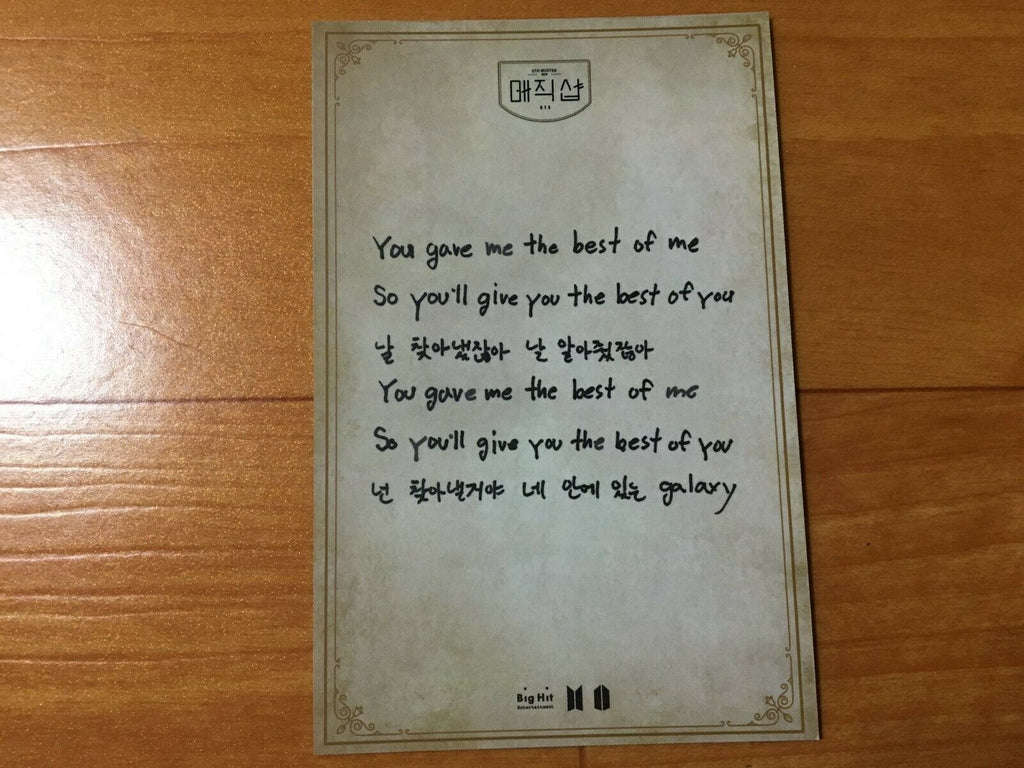 5TH MUSTER
BTS
매직샵
BTS
You gave me the best of me
So you'll give you the best of you
날 찾아냈잖아 날 알아줬잖아
You gave me the best of me
So you'll give you the best of you
넌 찾아낼거야 네 안에 있는 galaxy
Big Hit
Entertainment